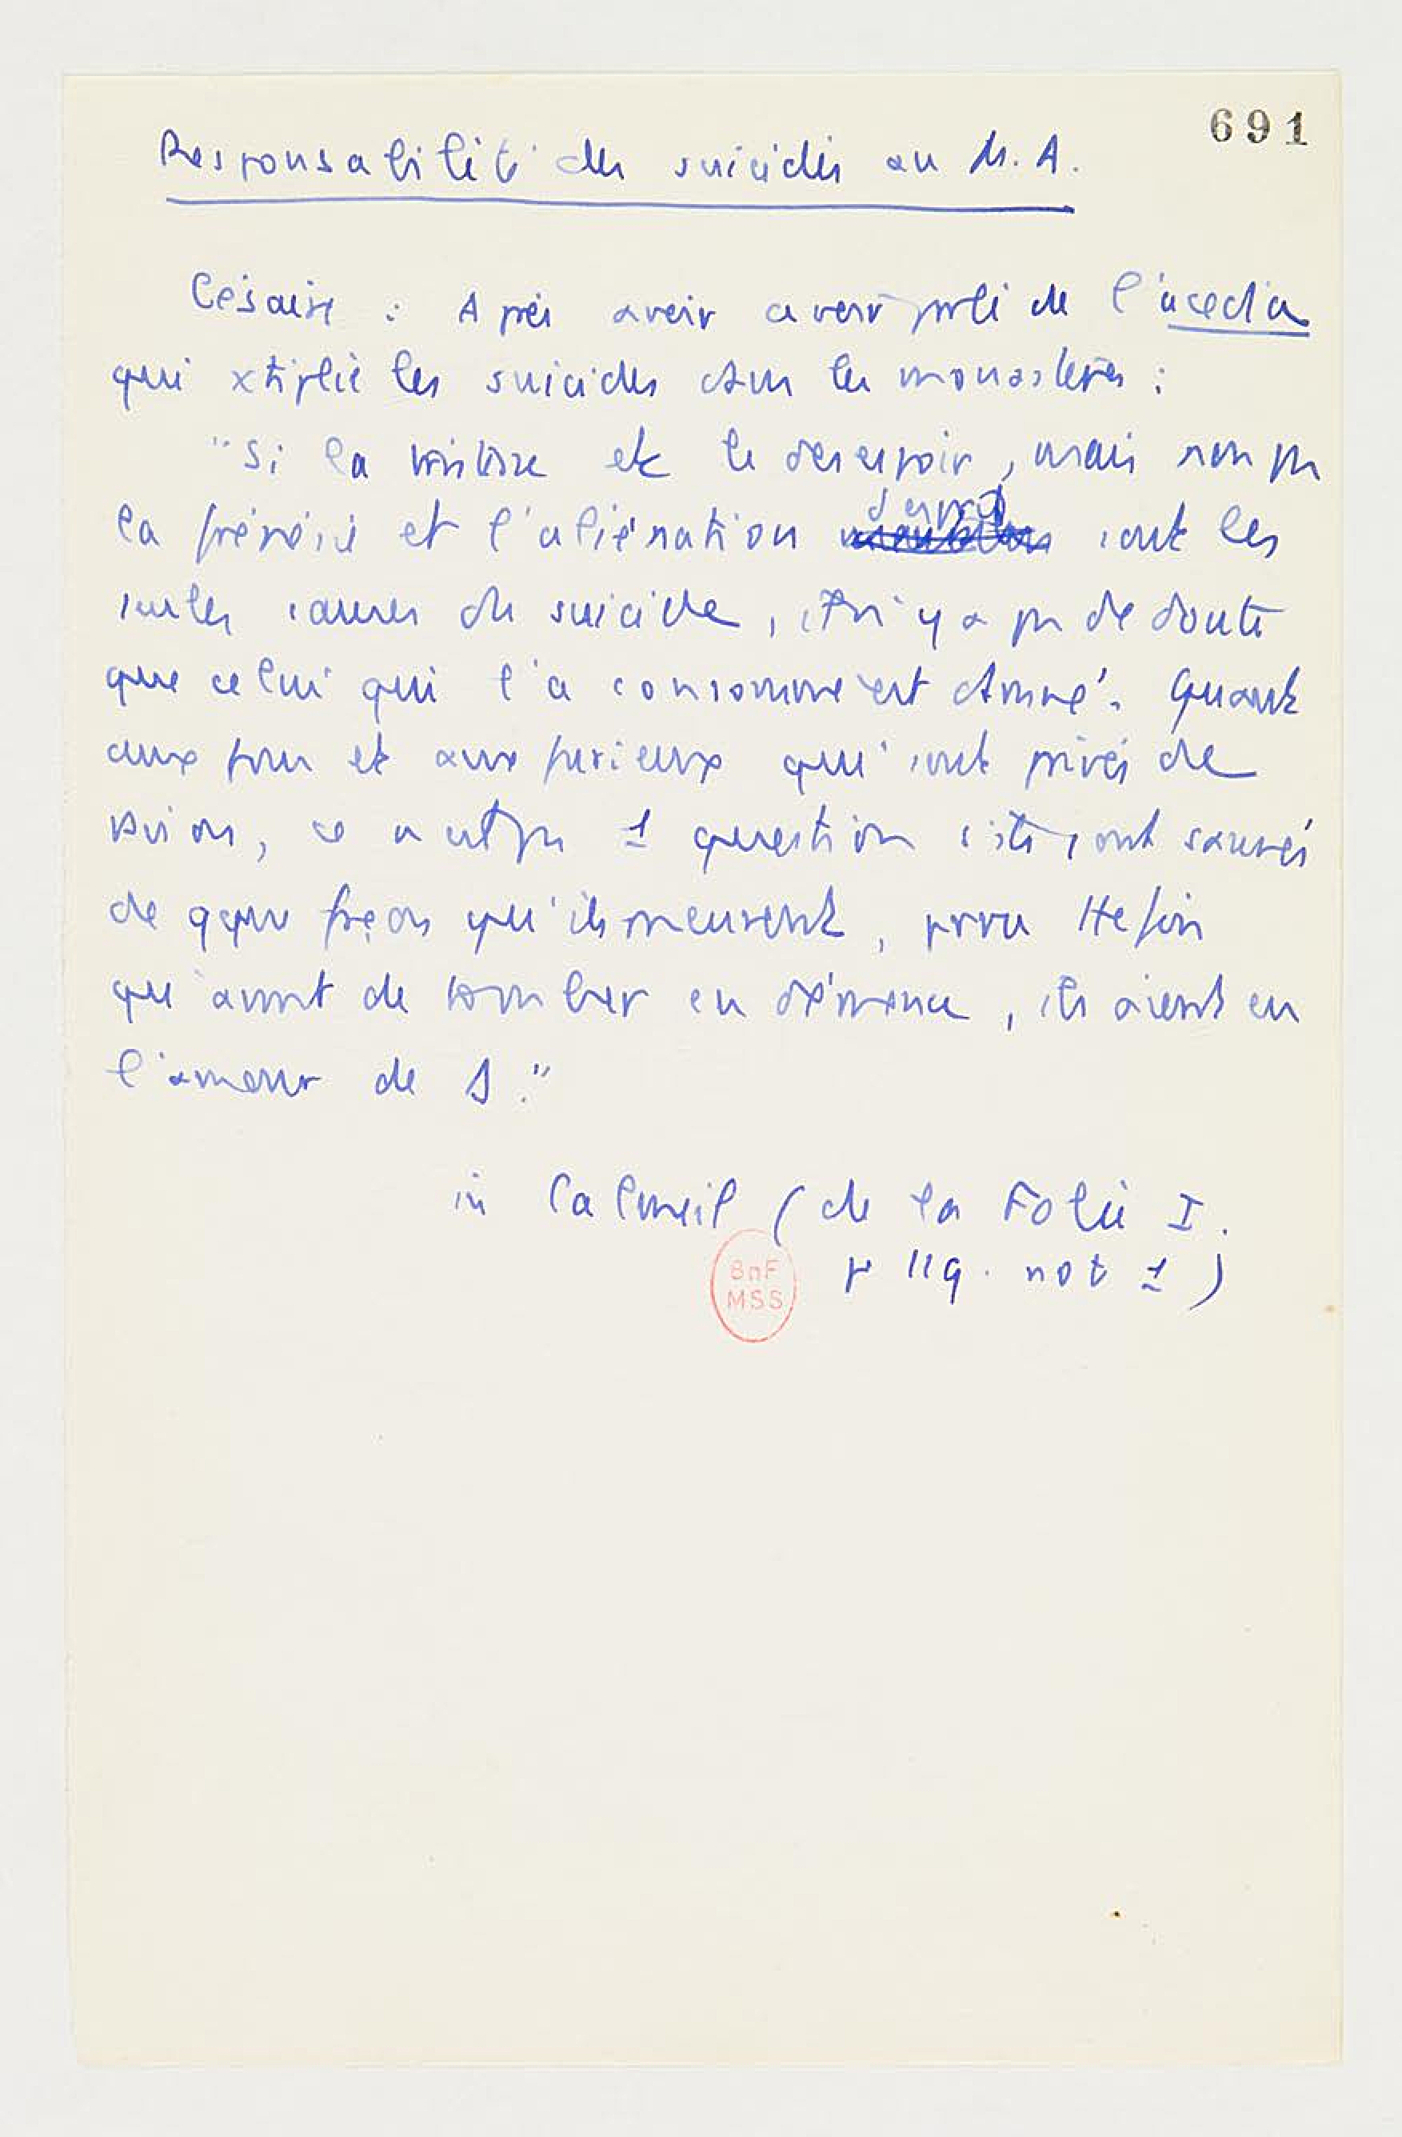 691
Responsabilité des suicidés au M. A.
Césaire : Après avoir avoir parlé de l'acedia
qui xtiplie les suicides dans les monastères :
"Si la tristesse et le desespoir, mais non pas
la frénésie et l'aliénation d'esprit sont les
seules causes du suicide, il n'y a pas de doute
que celui qui l'a consommé est damné. Quant
aux fous et aux furieux qui sont privés de
raison, ce n'est pas 1 question s'ils sont sauvés
de qque façon qu'ils meurent, pourvu
qu'avant de tomber en démence, ils aient eu
l'amour de D."
in Calmeil (de la Folie I.
p 119. not 1)
BnF
MSS